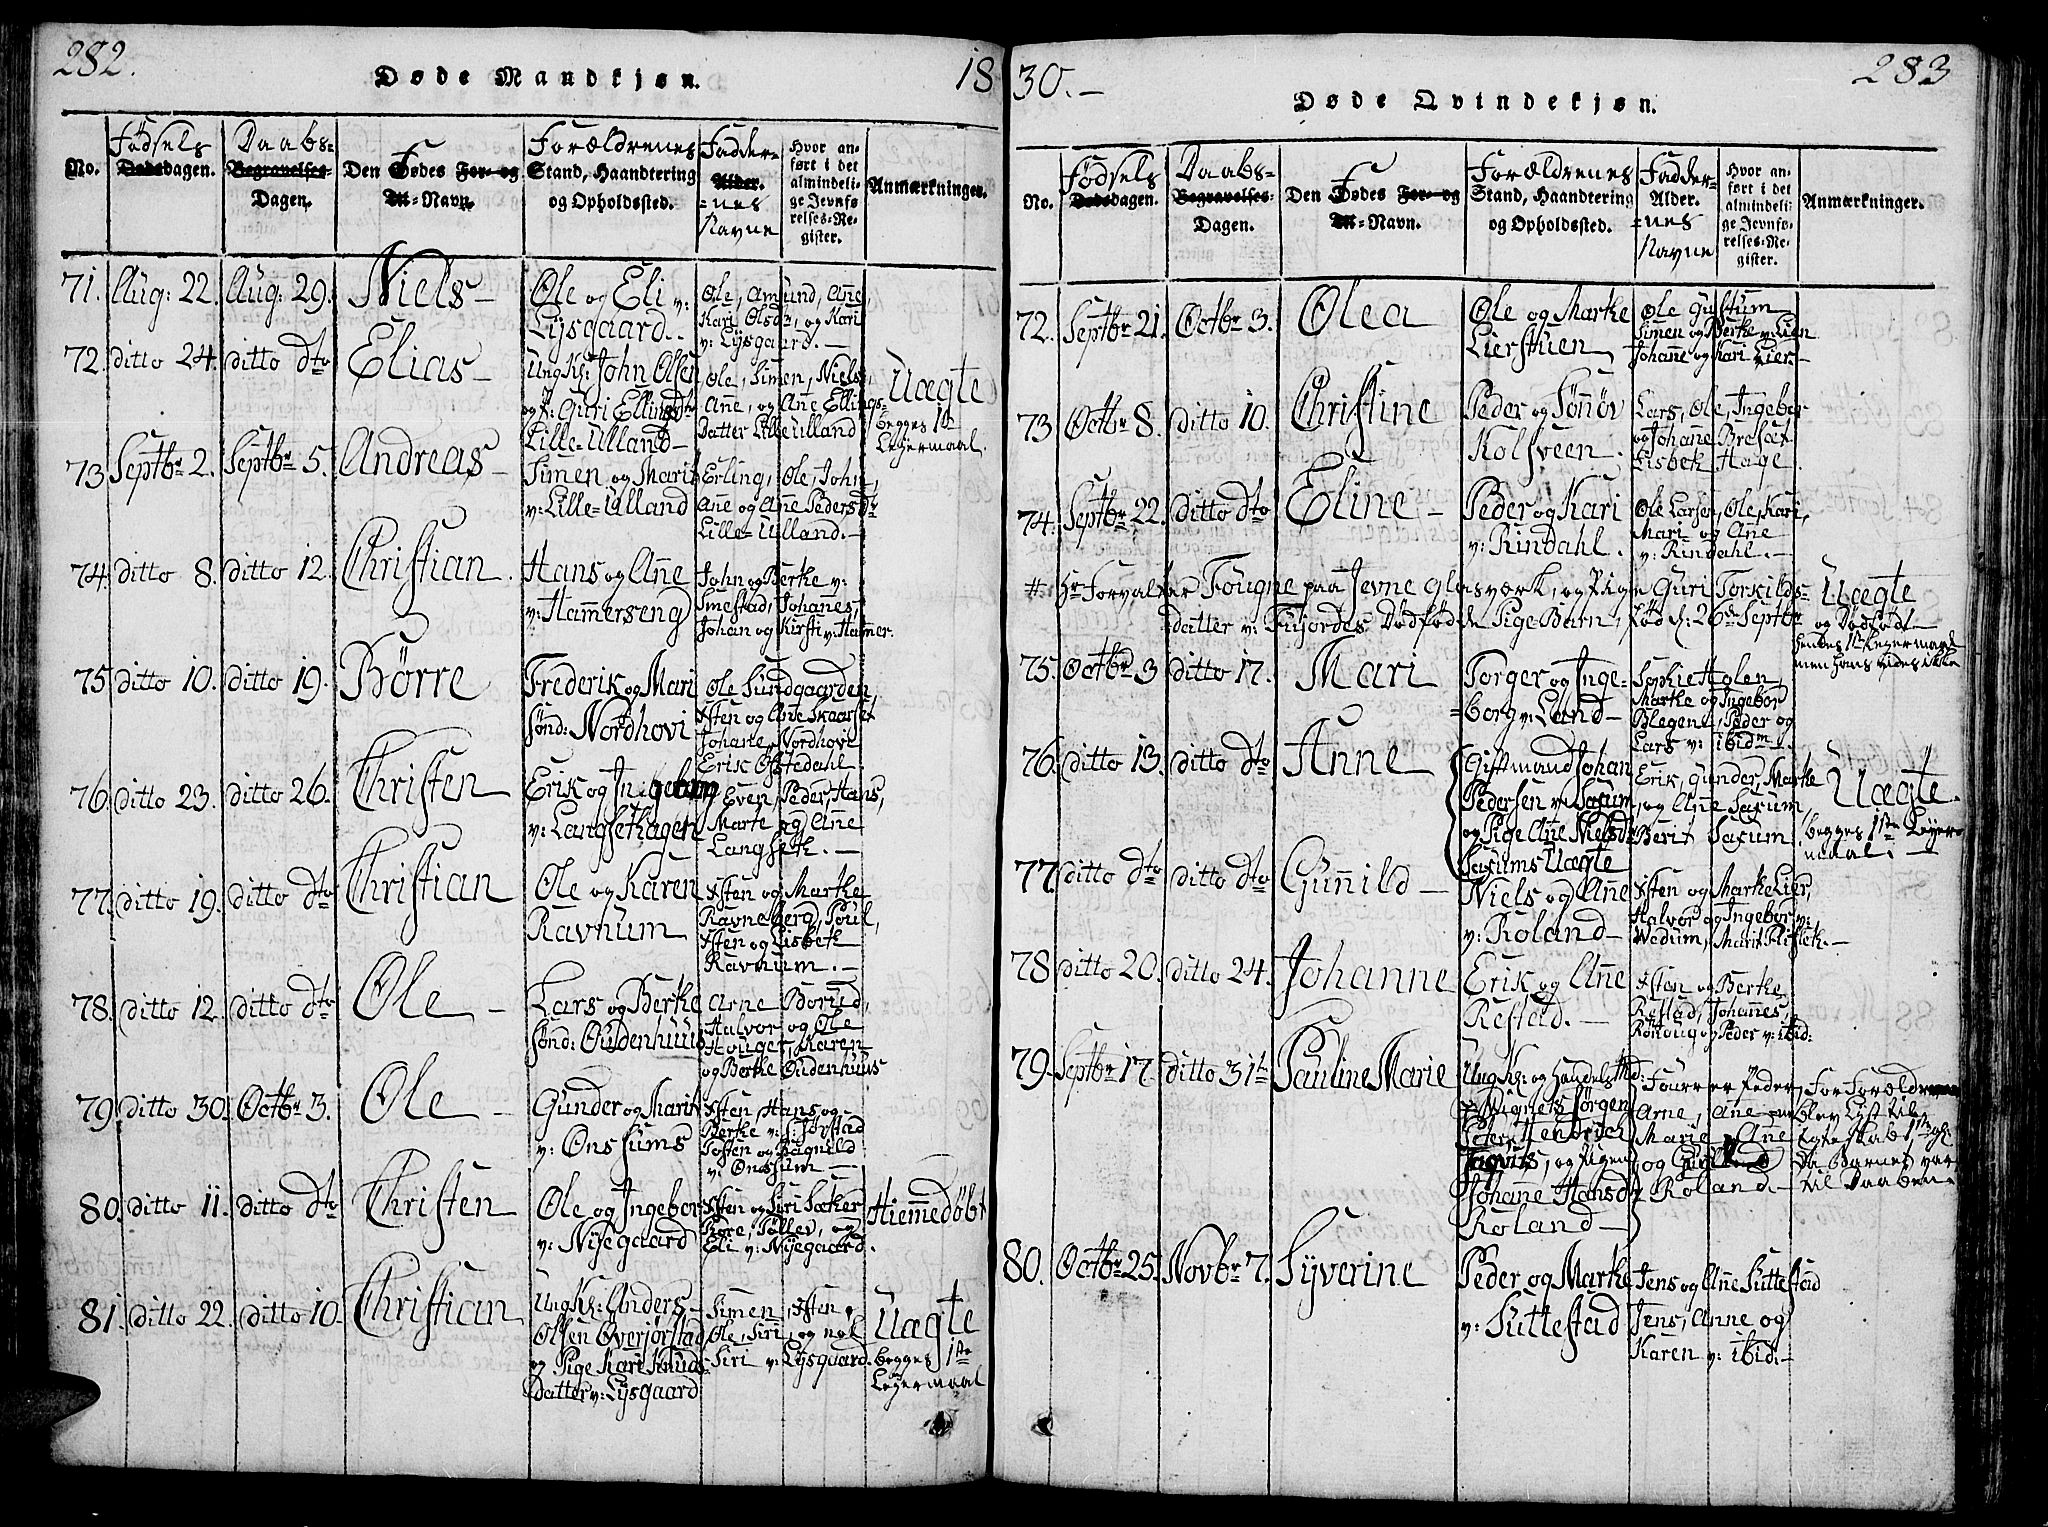 282.
Døde Mandkjøn.
18
No.
Fødsels
Dødsdagen.
Daabs-
Begravelses-
Dagen.
Den Fødes For- og
M-Navn.
Forældrenes
Stand, Haandtering
og Opholdssted.
Fadder-
Alder.
=nes
Navne
Hvor an-
ført i det
almindeli-
ge Jevnfø-
relses-Re-
gister.
Anmærkninger.
71. Aug: 22. Aug: 29. Niels-
Ole og Eli v:
Lysgaard.
Ole, Amund, Añe,
Kari Olsdr, og Kari
v: Lysgaard.-
72. ditto 24. ditto dto Elias-
Ung K: John Olsen
og P: Guri Ellingsdtr
Lille-Ulland-
Ole, Simen, Niels,
Añe, og Añe Ellings-
Datter Lille Ulland
Uægte
begges 1te
Lejermaal.
73 Septbr 2. Septbr 5. Andreas-
Simen og Marit
v: Lille=Ulland
Erling, Ole, John,
Añe og Añe Pedersdtr
Lille=Ulland.-
74. ditto 8. ditto 12. Christian.
Hans og Añe
v: Ham̃erseng
John og Berthe v:
Smestad, Johañes,
Johan og Kirsti v: Ham̃er.
75 ditto 10. ditto 19. Børre
Frederik og Mari
Sönd: Nordhovi
Ole Sundgaarden,
Østen og Añe Skaarset
Johañe, Nordhovi
Erik Ofstedahl.
76 ditto 23. ditto 26. Christen
Erik og Ingeborg
v: Langsethagen
Even, Peder, Hans,
Marte og Añe
Langseth.-
77. ditto 19. ditto dto Christian
Ole og Karen
Ravnum
Østen og Marthe
Ravneberg, Poul,
Østen og Lisbeth
Ravnum.-
78. ditto 12. ditto dto Ole-
Lars og Berthe
Sönd: Oudenhuus
Arne Borud,
Halvor og Ole
Houger, Karen
og Berthe Oudenhuus
79. ditto 30. Octbr 3. Ole-
Gunder og Marit
v: Onssums
Østen, Hans og
Berthe v: Sjørstad
Tosten og Ragnild
v: Onssum-
80. ditto 11. ditto dto Christen
Ole og Ingebor
v: Nyegaard
Østen og Siri Sæther
Bore, Tollev, og
Eli v: Nyegaard.
Hiem̃edöbt
81. ditto 22. ditto 10. Christian
Ung K: Anders
Olsen Overjørstad
og Pige Kari Knuds-
Datter v: Lysgaard
Simen, Østen,
Ole, Siri, og
Siri v: Lysgaard.
Uægte
begges 1te
Lejermaal
30.-
283
Døde Qvindekjøn.
No.
Fødsels
Dødsdagen.
Daabs-
Begravelses-
Dagen.
Den Fødes For- og
M-Navn.
Forældrenes
Stand, Haandtering
og Opholdssted.
Fadder-
Alder.
=nes
Navne
Hvor an-
ført i det
almindeli-
ge Jevnfø-
relses-Re-
gister.
Anmærkninger.
72. Septbr 21. Octbr 3. Olea
Ole og Marthe
Lierstuen
Ole Gustum
Simen og Berthe v: Lien
Johañe og Kari Lier-
73 Octbr 8. ditto 10. Christine
Peder og Söñöv
Kolsveen.
Lars, Ole, Ingebor
og Johañe Bræset
Lisbeth Hage.
74. Septbr 22. ditto dto Eline-
Peder og Kari
v: Rindahl.
Ole Larsen, Ole, Kari,
Mari og Añe
v: Rindahl.-
# Hr Forvalter Fougne paa Jevne Glasværk, og Pige Guri Torkilds-
datter v: Fyordes Dødföde Pige Barn, fød d: 26de Septbr
Uægte
og Dödfødt-
hendes 1te Lejermaal
men hans vides ikke
75. Octbr 3 ditto 17. Mari
Torger og Inge-
=borg v: Land-
Sophie Holen,
Marthe og Ingebor
Blegen, Peder og
Lars v: ibidm.
76. ditto 13. ditto dto Anne
Giftmand Johan
Pedersen v: Saxum,
og Pige Añe Nielsdr
Saxums Uægte
Erik, Gunder, Marthe
og Añe Saxum,
Berit Saxum.
Uægte.
begges 1te Lejer-
maal.-
77. ditto dto ditto dto Guñild-
Niels og Añe
v: Roland-
Østen og Marthe Lier,
Halvor og Ingebor v:
Wedum, Marit Flifleth.-
78 ditto 20. ditto 24. Johanne
Erik og Añe
Restad.-
Østen og Berthe
Restad, Johañes,
og Peder v: ibid:
79. Septbr 17. ditto 31te Pauline Marie
Ung K: og Handels
Jørgen
Hendrich
og Pigen
Johañe Hansdr
Roland-
Fourrer Peder
Arne, Añe
Marie, Añe
og
Roland.-
For Forældrene
blev Lyst til
Ægteskab 1te g:
Da Barnet var
til Daaben-
80. Octbr 25. Novbr 7. Syverine
Peder og Marthe
v: Suttestad
Jens og Añe Suttestad
Jens, Anne og
Karen v: ibid:-